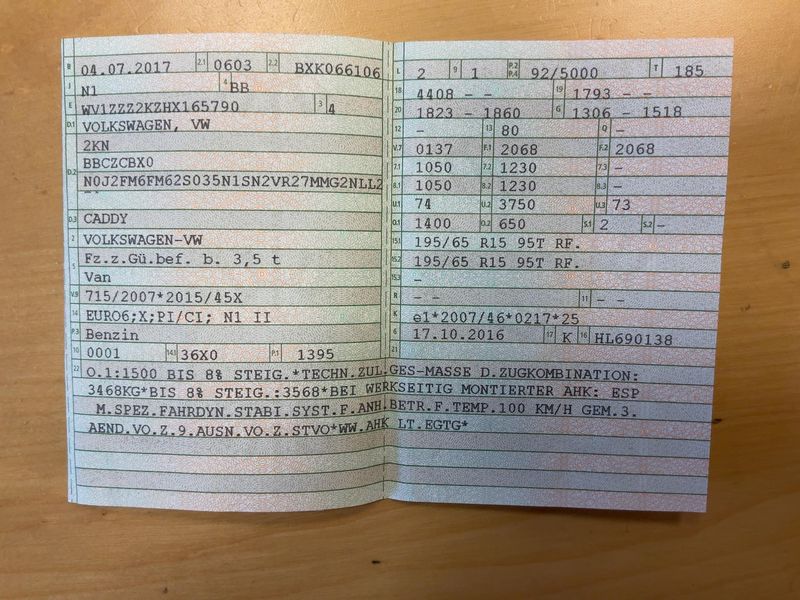 B 04.07.2017 2.1 0603 2.2 BXK066106
J N1 4 BB
E WV1ZZZ2KZHX165790 3 4
D.1 VOLKSWAGEN, VW
2KN
D.2 BBCZCBX0
N0J2FM6FM62S035N1SN2VR27MMG2NLL2
D.3 CADDY
2 VOLKSWAGEN-VW
5 Fz.z.Gü.bef. b. 3,5 t
Van
V.9 715/2007*2015/45X
14 EURO6;X;PI/CI; N1 II
P.3 Benzin
10 0001 14.1 36X0 P.1 1395
L 2 9 1 P.2 P.4 92/5000 T 185
18 4408 - - 19 1793 - -
20 1823 - 1860 G 1306 - 1518
12 - 13 80 Q -
V.7 0137 F.1 2068 F.2 2068
7.1 1050 7.2 1230 7.3 -
8.1 1050 8.2 1230 8.3 -
U.1 74 U.2 3750 U.3 73
O.1 1400 O.2 650 S.1 2 S.2 -
15.1 195/65 R15 95T RF.
15.2 195/65 R15 95T RF.
15.3 -
R - - 11 -
K e1*2007/46*0217*25
6 17.10.2016 17 K 16 HL690138
21
22 O.1:1500 BIS 8% STEIG.*TECHN.ZUL.GES-MASSE D.ZUGKOMBINATION:
3468KG*BIS 8% STEIG.:3568*BEI WERKSEITIG MONTIERTER AHK: ESP
M.SPEZ.FAHRDYN.STABI.SYST.F.ANH.BETR.F.TEMP.100 KM/H GEM.3.
AEND.VO.Z.9.AUSN.VO.Z.STVO*WW.AHK LT.EGTG*